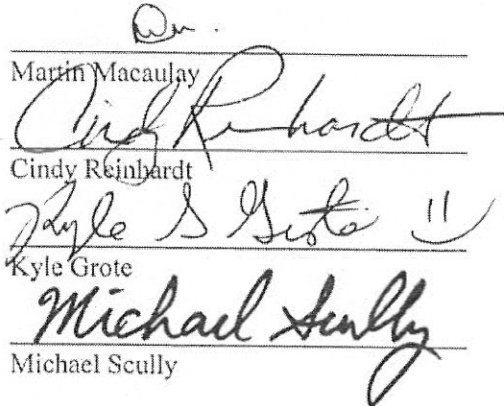 Martin Macaulay
Cindy Reinhardt
Cindy Reinhardt
Kyle S Grote
Kyle Grote
Michael Scully
Michael Scully